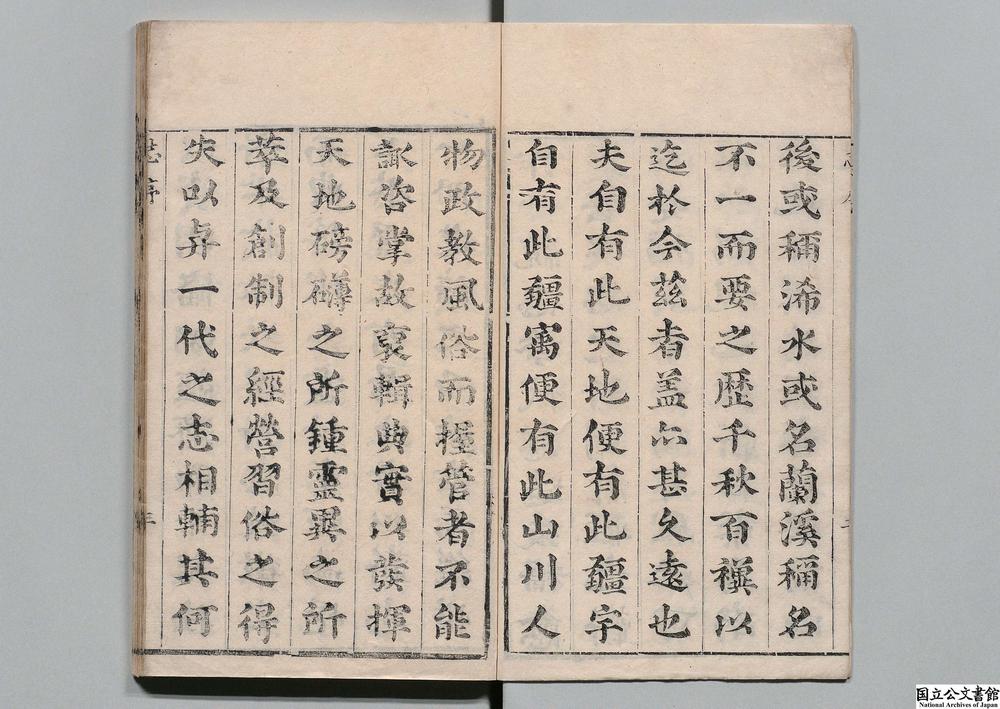 後或稱浠水或名蘭溪稱名
不一而要之歷千秋百禩以
迄於今茲者蓋亦甚久遠也
夫自有此天地便有此疆字
自有此疆㝢便有此山川人
物政教風俗而握管者不能
諏咨掌故裒輯典實以發揮
天地磅礴之所鍾靈異之所
萃及創制之經營習俗之得
失以弁一代之志相輔其何
志序
国立公文書館
National Archives of Japan